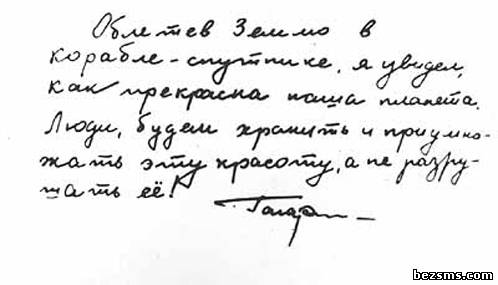 Облетев Землю в
корабле-спутнике, я увидел,
как прекрасна наша планета.
Люди, будем хранить и приумно-
жать эту красоту, а не разру-
шать её!
Гагарин
bezsms.com